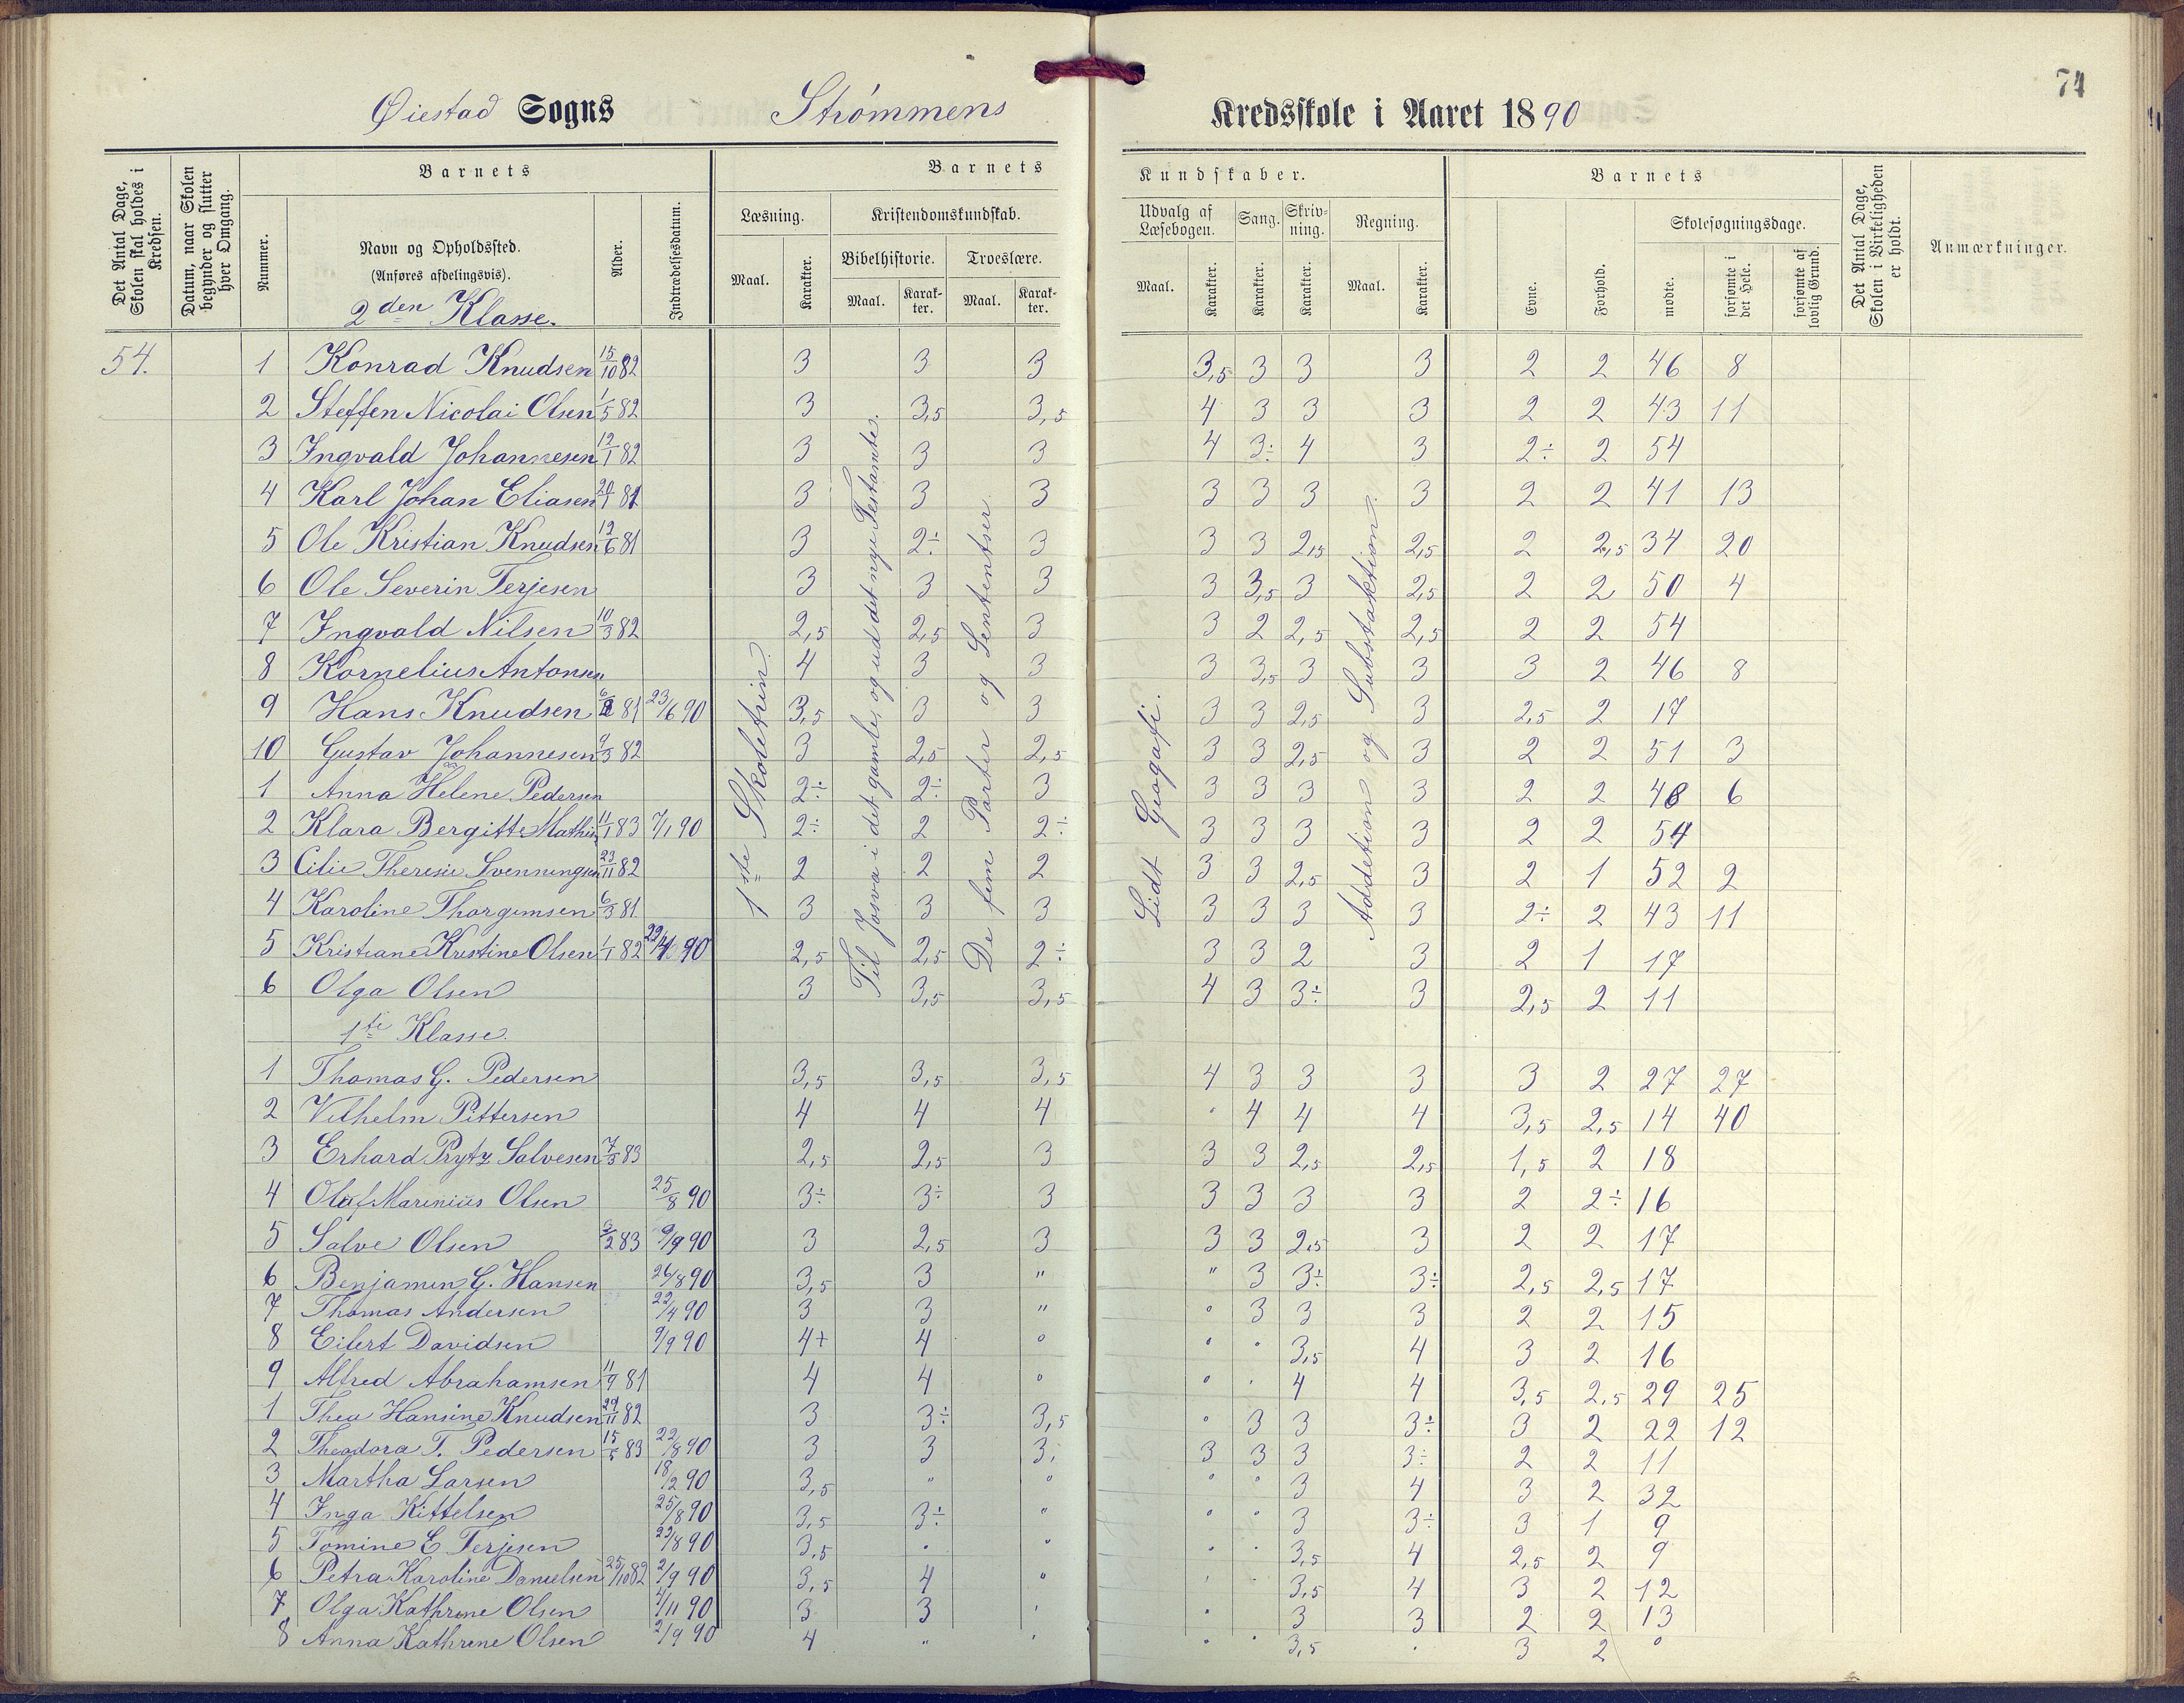 74
Øiestad Sogns Strømmens Kredsskole i Aaret 1890
Det Antal Dage, Skolen skal holdes i Kredsen.
Datum, naar Skolen begynder og slutter hver Omgang.
Barnets
Nummer.
Navn og Opholdssted.
(Anføres afdelingsvis).
2den Klasse.
Alder.
Indtrædelsesdatum.
Barnets Kundskaber.
Læsning.
Maal. Karakter.
Kristendomskundskab.
Bibelhistorie. Troeslære.
Maal. Karak-ter. Maal. Karak-ter.
Udvalg af Læsebogen. Sang. Skriv-ning. Regning.
Maal. Karakter. Karakter. Karakter. Maal. Karakter.
Barnets
Evne. Forhold.
Skolesøgningsdage.
mødte. forsømte i det Hele. forsømte af lovlig Grund.
Det Antal Dage, Skolen i Virkeligheden er holdt.
Anmærkninger.
1ste Skoletrin
Til Josva i det gamle, og ud det nye Testamente.
De fem Parter og Sententser
Lidt Geografi.
Addetion og Substaktion.
54. 1 Konrad Knudsen 15/10 82 3 3 3 3,5 3 3 3 2 2 46 8
2 Steffen Nicolai Olsen 1/5 82 3 3,5 3,5 4 3 3 3 2 2 43 11
3 Ingvald Johannesen 12/1 82 3 3 3 4 3÷ 4 3 2÷ 2 54
4 Karl Johan Eliasen 3 3 3 3 3 3 3 2 2 41 13
5 Ole Kristian Knudsen 12/6 81 3 2÷ 3 3 3 2,5 2,5 2 2,5 34 20
6 Ole Severin Terjesen 3 3 3 3 3,5 3 2,5 2 2 50 4
7 Ingvald Nilsen 10/3 82 2,5 2,5 3 3 2 2,5 2,5 2 2 54
8 Kornelius Antonsen 4 3 3 3 3,5 3 3 3 2 46 8
9 Hans Knudsen 81 23/6 90 3,5 3 3 3 3 2,5 3 2,5 2 17
10 Gustav Johannesen 9/3 82 3 2,5 2,5 3 3 2,5 3 2 2 51 3
1 Anna Helene Pedersen 2÷ 2÷ 3 3 3 3 3 2 2 48 6
2 Klara Bergitte Mathin 11/1 83 7/1 90 2÷ 2 2÷ 3 3 3 3 2 2 54
3 Cilie Theresie Svenningsen 23/11 82 2 2 2 3 3 2,5 3 2 1 52 2
4 Karoline Thorgimsen 6/3 81 3 3 3 3 3 3 3 2÷ 2 43 11
5 Kristiane Kristine Olsen 1/1 82 22/4 90 2,5 2,5 2÷ 3 3 2 3 2 1 17
6 Olga Olsen 3 3,5 3,5 4 3 3÷ 3 2,5 2 11
1ste Klasse.
1 Thomas G. Pedersen 3,5 3,5 3,5 4 3 3 3 3 2 27 27
2 Vilhelm Pittersen 4 4 4 " 4 4 4 3,5 2,5 14 40
3 Erhard Prytz Salvesen 7/3 83 2,5 2,5 3 3 3 2,5 2,5 1,5 2 18
4 Olaf Marinius Olsen 25/8 90 3÷ 3÷ 3 3 3 3 3 2 2÷ 16
5 Salve Olsen 83 9/9 90 3 2,5 3 3 3 2,5 3 2 2 17
6 Benjamin G. Hansen 26/8 90 3,5 3 " " 3 3÷ 3÷ 2,5 2,5 17
7 Thomas Andersen 22/4 90 3 3 " " 3 3 3 2 2 15
8 Eilert Davidsen 9/9 90 4+ 4 " " " 3,5 4 3 2 16
9 Alfred Abrahamsen 11/9 81 4 4 " " " 4 4 3,5 2,5 29 25
1 Thea Hansine Knudsen 29/11 82 3 3÷ 3,5 " 3 3 3÷ 3 2 22 12
2 Theodora T. Pedersen 15/5 83 22/8 90 3 3 3, 3 3 3 3÷ 2 2 11
3 Martha Larsen 18/2 90 3,5 " " " " 3 4 3 2 32
4 Inga Kittelsen 25/8 90 3,5 3÷ " " " 3 3÷ 3 1 9
5 Tomine E Terjesen 22/8 90 3,5 " " " " 3,5 4 2,5 2 9
6 Petra Karoline Danielsen 25/10 82 2/9 90 3,5 4 " " " 3,5 4 3 2 12
7 Olga Kathrine Olsen 4/11 90 3 3 " " 3 3 2 2 13
8 Anna Kathrene Olsen 2/9 90 4 " " " " 3,5 " 3 2 "